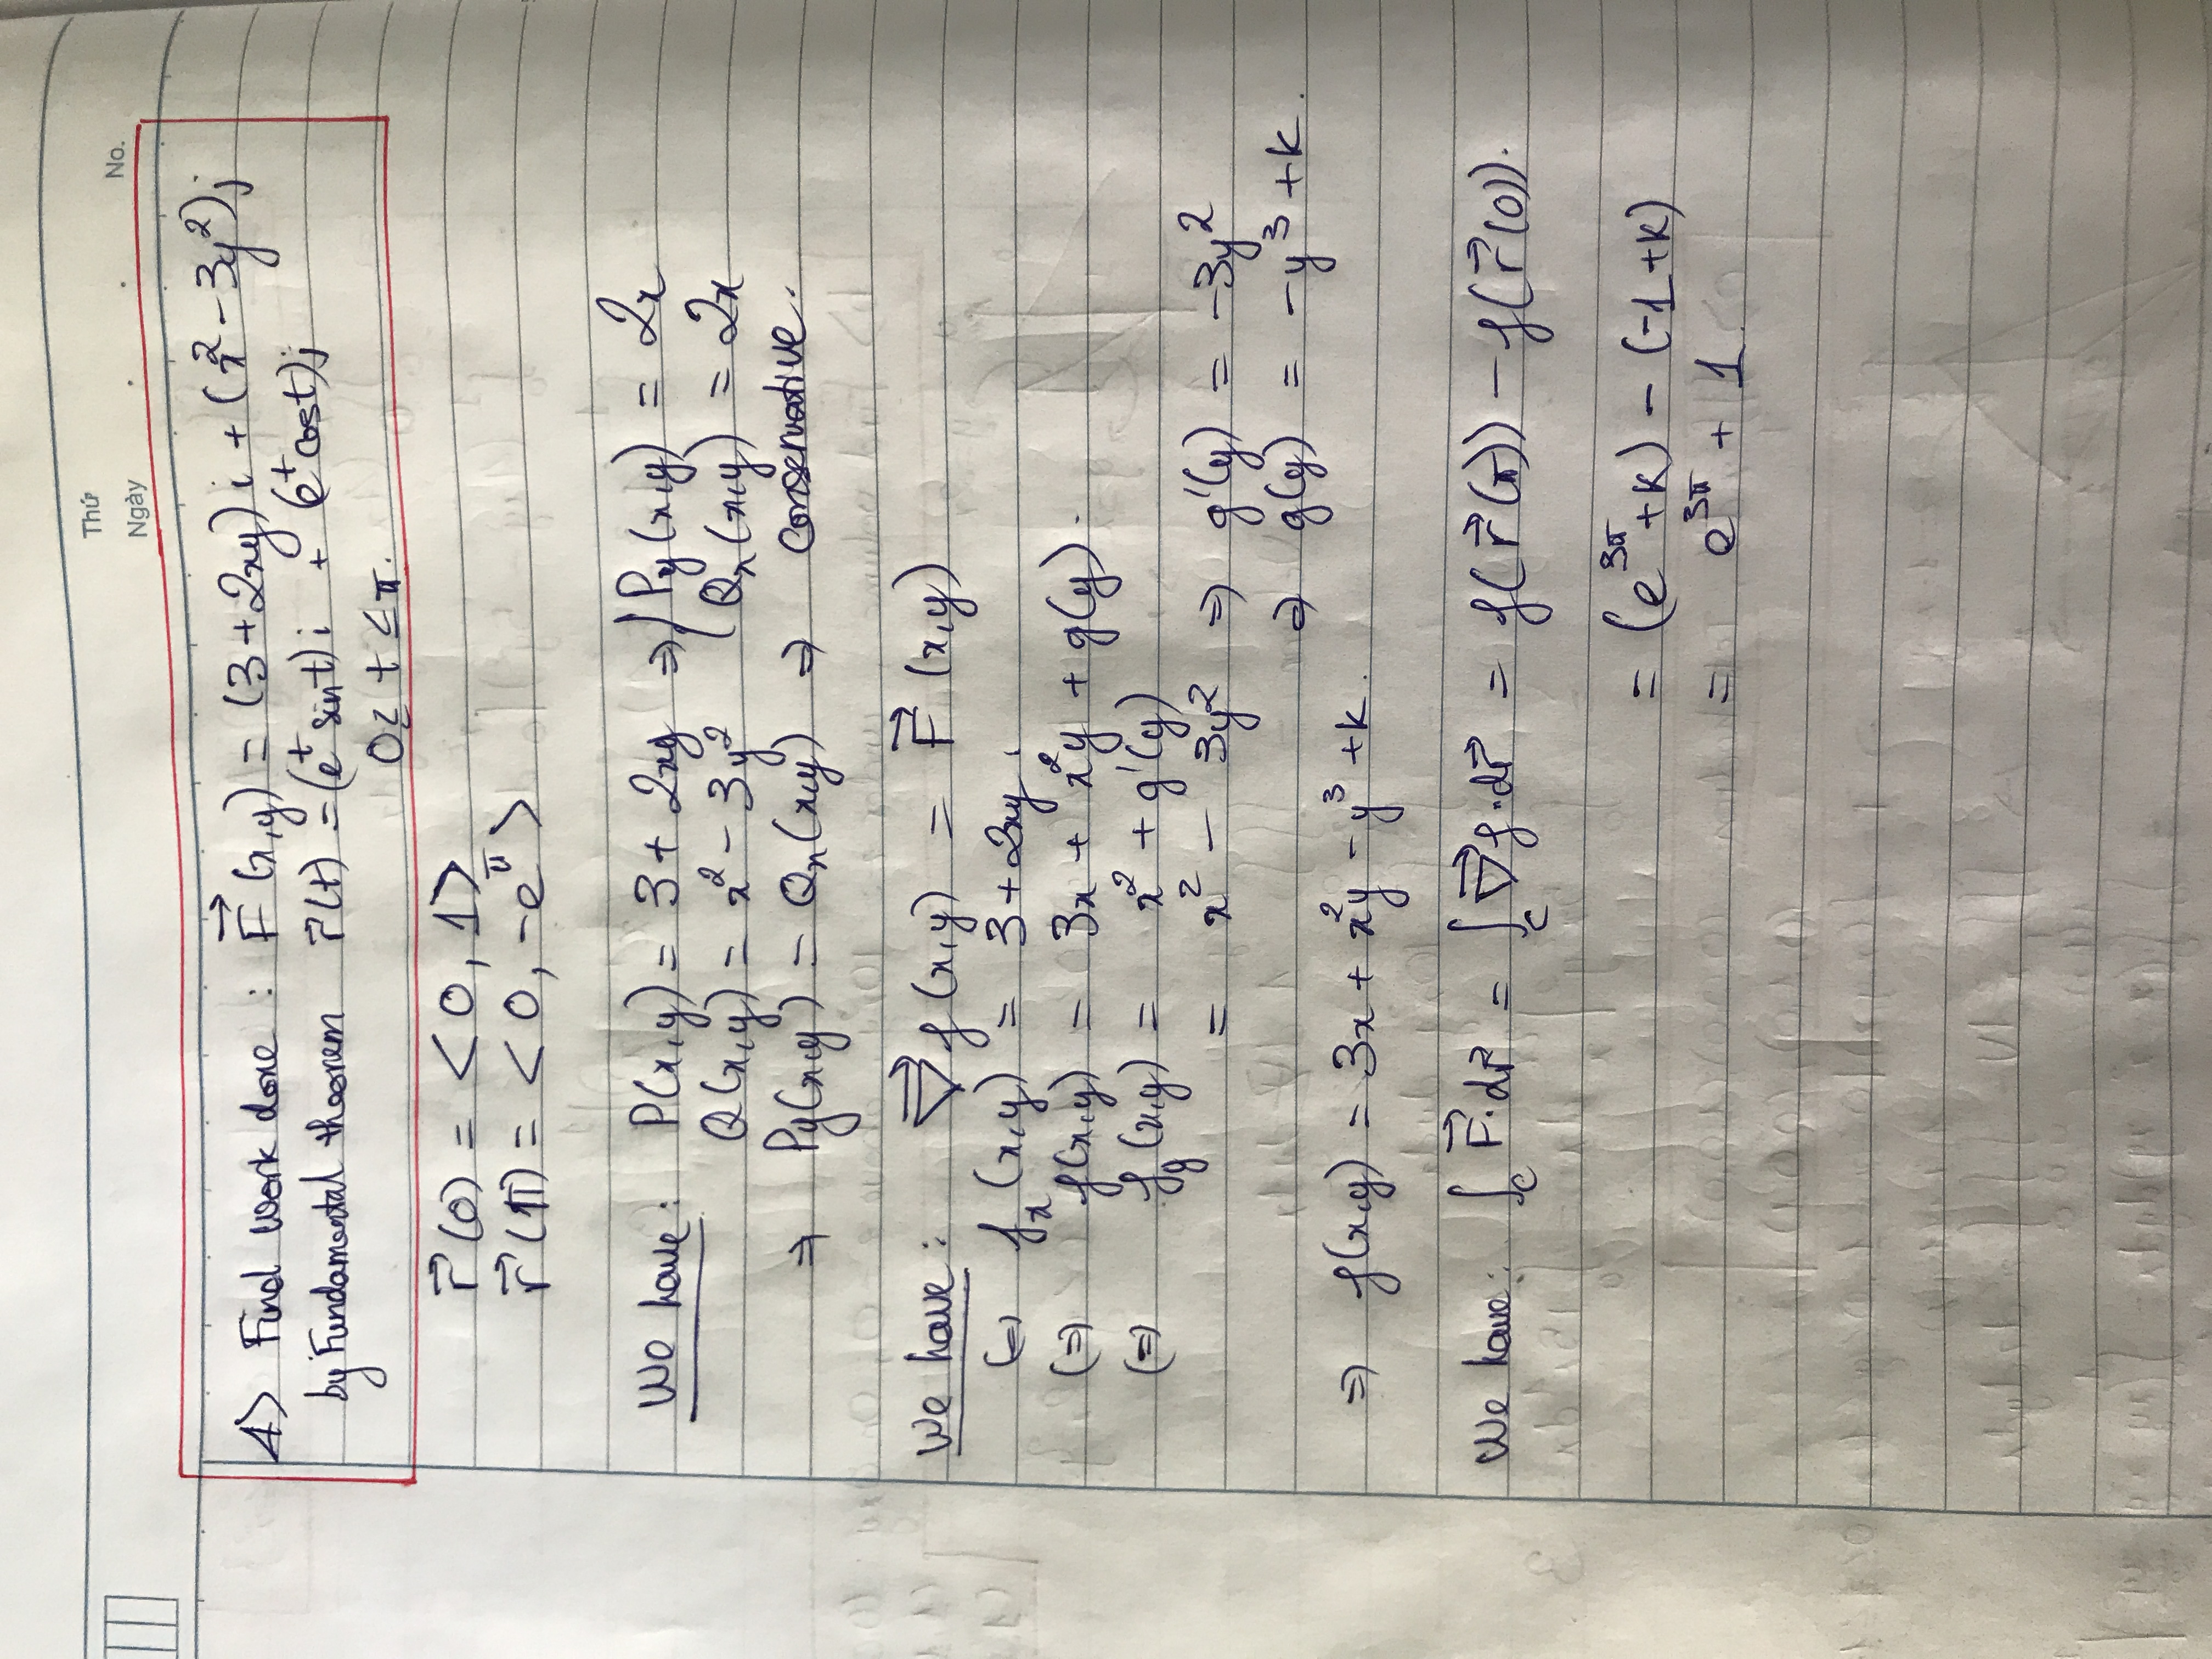 Thứ
Ngày
No.
4> Find work done : F⃗ (x,y) = (3+2xy) i + (x² - 3y²)j
by Fundamental theorem r⃗(t) = (e^t sint) i + (e^t cost)j
0 ≤ t ≤ π.
r⃗(0) = <0, 1>
r⃗(π) = <0, -e^π>
We have: P(x,y) = 3 + 2xy ⇒ { Py(x,y) = 2x
Q(x,y) = x² - 3y² Qx(x,y) = 2x
⇒ Py(x,y) = Qx(x,y) ⇒ conservative.
We have: ∇⃗f(x,y) = F⃗ (x,y)
⇔ fx(x,y) = 3+2xy.
⇔ f(x,y) = 3x + x²y + g(y).
⇔ fy(x,y) = x² + g'(y)
= x² - 3y² ⇒ g'(y) = -3y²
⇒ g(y) = -y³ + k.
⇒ f(x,y) = 3x + x²y - y³ + k.
We have: ∫_C F⃗.dr⃗ = ∫_C ∇⃗f.dr⃗ = f(r⃗(π)) - f(r⃗(0)).
= (e^3π + k) - (-1 + k)
= e^3π + 1.